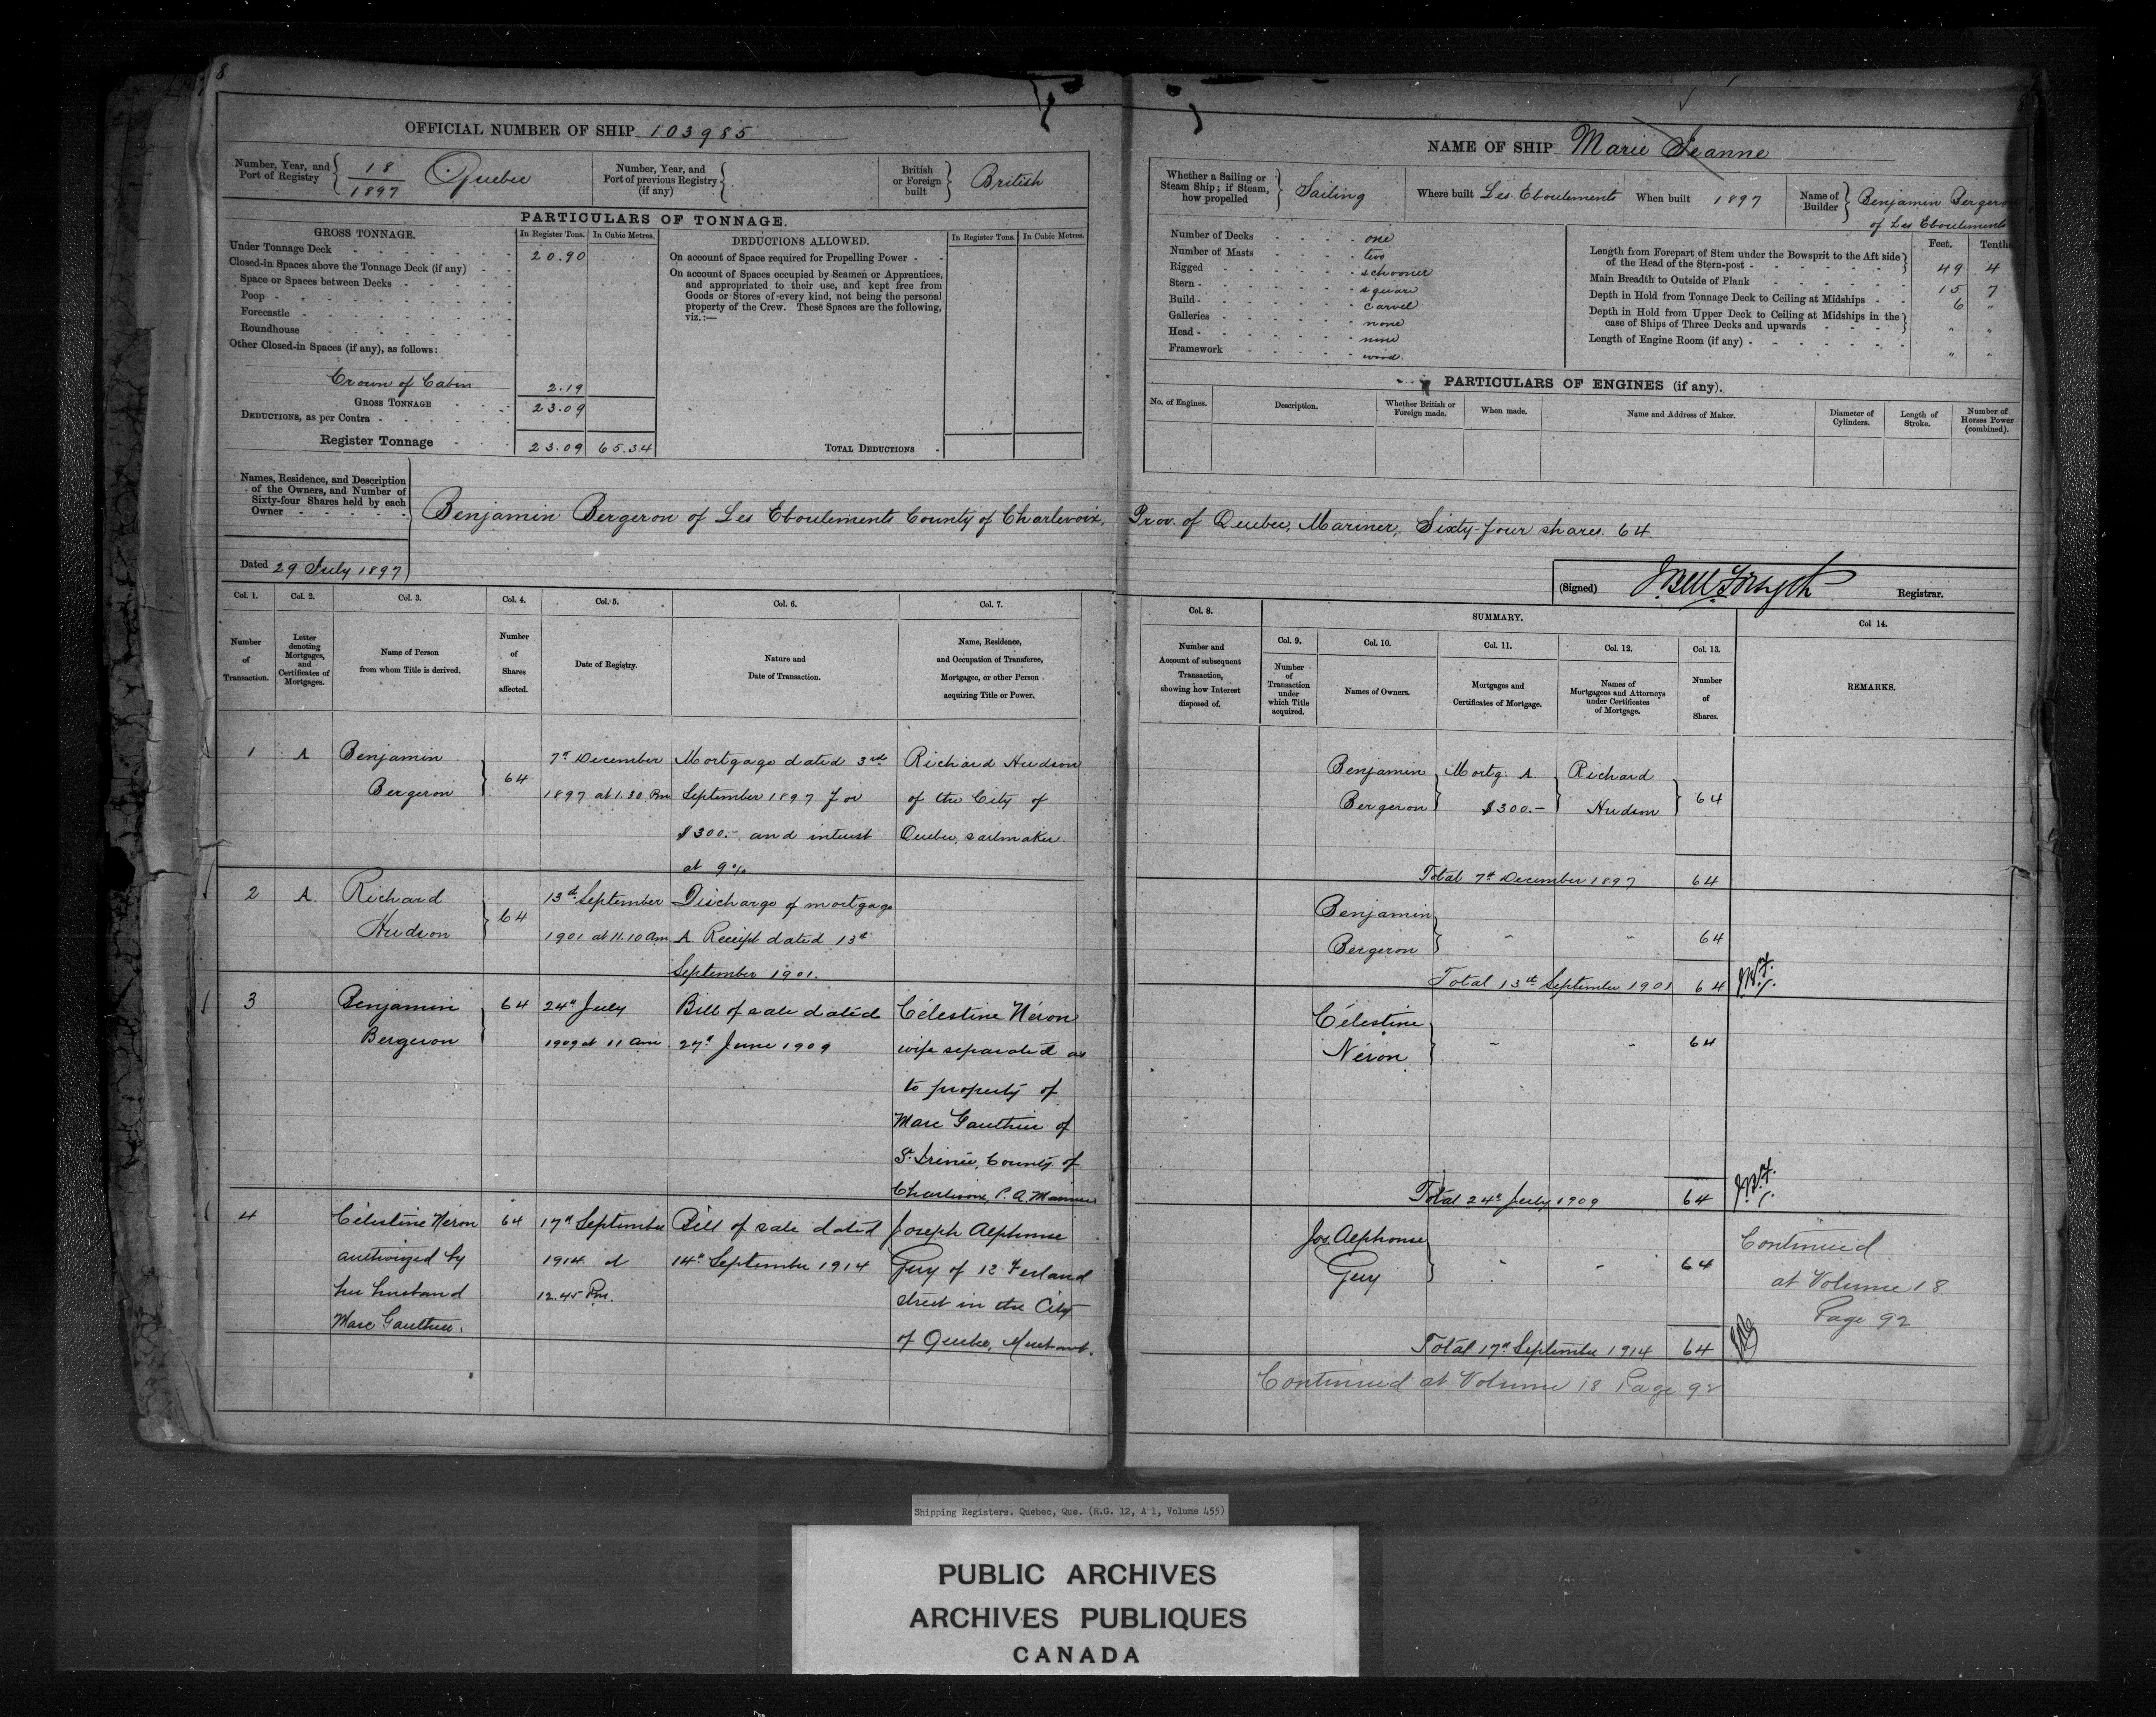 8
OFFICIAL NUMBER OF SHIP 103985
Number, Year, and Port of Registry 18/1897 Quebec
Number, Year, and Port of previous Registry (if any)
British or Foreign built British
PARTICULARS OF TONNAGE.
GROSS TONNAGE. In Register Tons. In Cubic Metres.
Under Tonnage Deck 20.90
Closed-in Spaces above the Tonnage Deck (if any)
Space or Spaces between Decks
Poop
Forecastle
Roundhouse
Other Closed-in Spaces (if any), as follows:
Crown of Cabin 2.19
GROSS TONNAGE 23.09
DEDUCTIONS, as per Contra
Register Tonnage 23.09 65.34
DEDUCTIONS ALLOWED. In Register Tons. In Cubic Metres.
On account of Space required for Propelling Power
On account of Spaces occupied by Seamen or Apprentices,
and appropriated to their use, and kept free from
Goods or Stores of every kind, not being the personal
property of the Crew. These Spaces are the following,
viz.:—
TOTAL DEDUCTIONS
NAME OF SHIP Marie Jeanne
Whether a Sailing or Steam Ship; if Steam, how propelled Sailing
Where built Les Eboulements
When built 1897
Name of Builder Benjamin Bergeron
of Les Eboulements
Number of Decks one
Number of Masts two
Rigged schooner
Stern square
Build carvel
Galleries none
Head none
Framework wood.
Feet. Tenths
Length from Forepart of Stem under the Bowsprit to the Aft side of the Head of the Stern-post 49 4
Main Breadth to Outside of Plank 15 7
Depth in Hold from Tonnage Deck to Ceiling at Midships 6 "
Depth in Hold from Upper Deck to Ceiling at Midships in the case of Ships of Three Decks and upwards " "
Length of Engine Room (if any) " "
PARTICULARS OF ENGINES (if any).
No. of Engines. Description. Whether British or Foreign made. When made. Name and Address of Maker. Diameter of Cylinders. Length of Stroke. Number of Horses Power (combined).
Names, Residence, and Description of the Owners, and Number of Sixty-four Shares held by each Owner
Benjamin Bergeron of Les Eboulements County of Charlevoix, Prov. of Quebec, Mariner, Sixty-four shares. 64.
Dated 29 July 1897
(Signed) J. Bell Forsyth Registrar.
Col. 1. Col. 2. Col. 3. Col. 4. Col. 5. Col. 6. Col. 7.
Number of Transaction.
Letter denoting Mortgages, and Certificates of Mortgages.
Name of Person from whom Title is derived.
Number of Shares affected.
Date of Registry.
Nature and Date of Transaction.
Name, Residence, and Occupation of Transferee, Mortgagee, or other Person acquiring Title or Power.
Col. 8. SUMMARY. Col. 14.
Col. 9. Col. 10. Col. 11. Col. 12. Col. 13.
Number and Account of subsequent Transaction, showing how Interest disposed of.
Number of Transaction under which Title acquired.
Names of Owners.
Mortgages and Certificates of Mortgage.
Names of Mortgagees and Attorneys under Certificates of Mortgage.
Number of Shares.
REMARKS.
1 A Benjamin Bergeron 64
7th December 1897 at 1.30 Pm
Mortgage dated 3rd
September 1897 for
$300.- and interest
at 9%
Richard Hudson
of the City of
Quebec, sailmaker.
Benjamin Bergeron Mortg. A $300.- Richard Hudson 64
Total 7th December 1897 64
2 A. Richard Hudson 64
13th September 1901 at 11.10 am
Discharge of mortgage
A. Receipt dated 13th
September 1901.
Benjamin Bergeron 64
Total 13th September 1901 64
3 Benjamin Bergeron 64
24th July 1909 at 11 am
Bill of sale dated
27th June 1909
Célestine Néron
wife separated as
to property of
Marc Gauthier of
St. Irénée, County of
Charlevoix, P.Q. Mariner
Célestine Néron 64
Total 24th July 1909 64
4 Célestine Néron
authorized by
her husband
Marc Gauthier.
64
17th September
1914 at
12.45 Pm.
Bill of sale dated
14th September 1914
Joseph Alphonse
Guy of 12 Ferland
street in the City
of Quebec, Merchant.
Jos. Alphonse Guy 64
Total 17th September 1914 64
Continued
at Volume 18
Page 92
Continued at Volume 18 Page 92
Shipping Registers. Quebec, Que. (R.G. 12, A 1, Volume 455)
PUBLIC ARCHIVES
ARCHIVES PUBLIQUES
CANADA